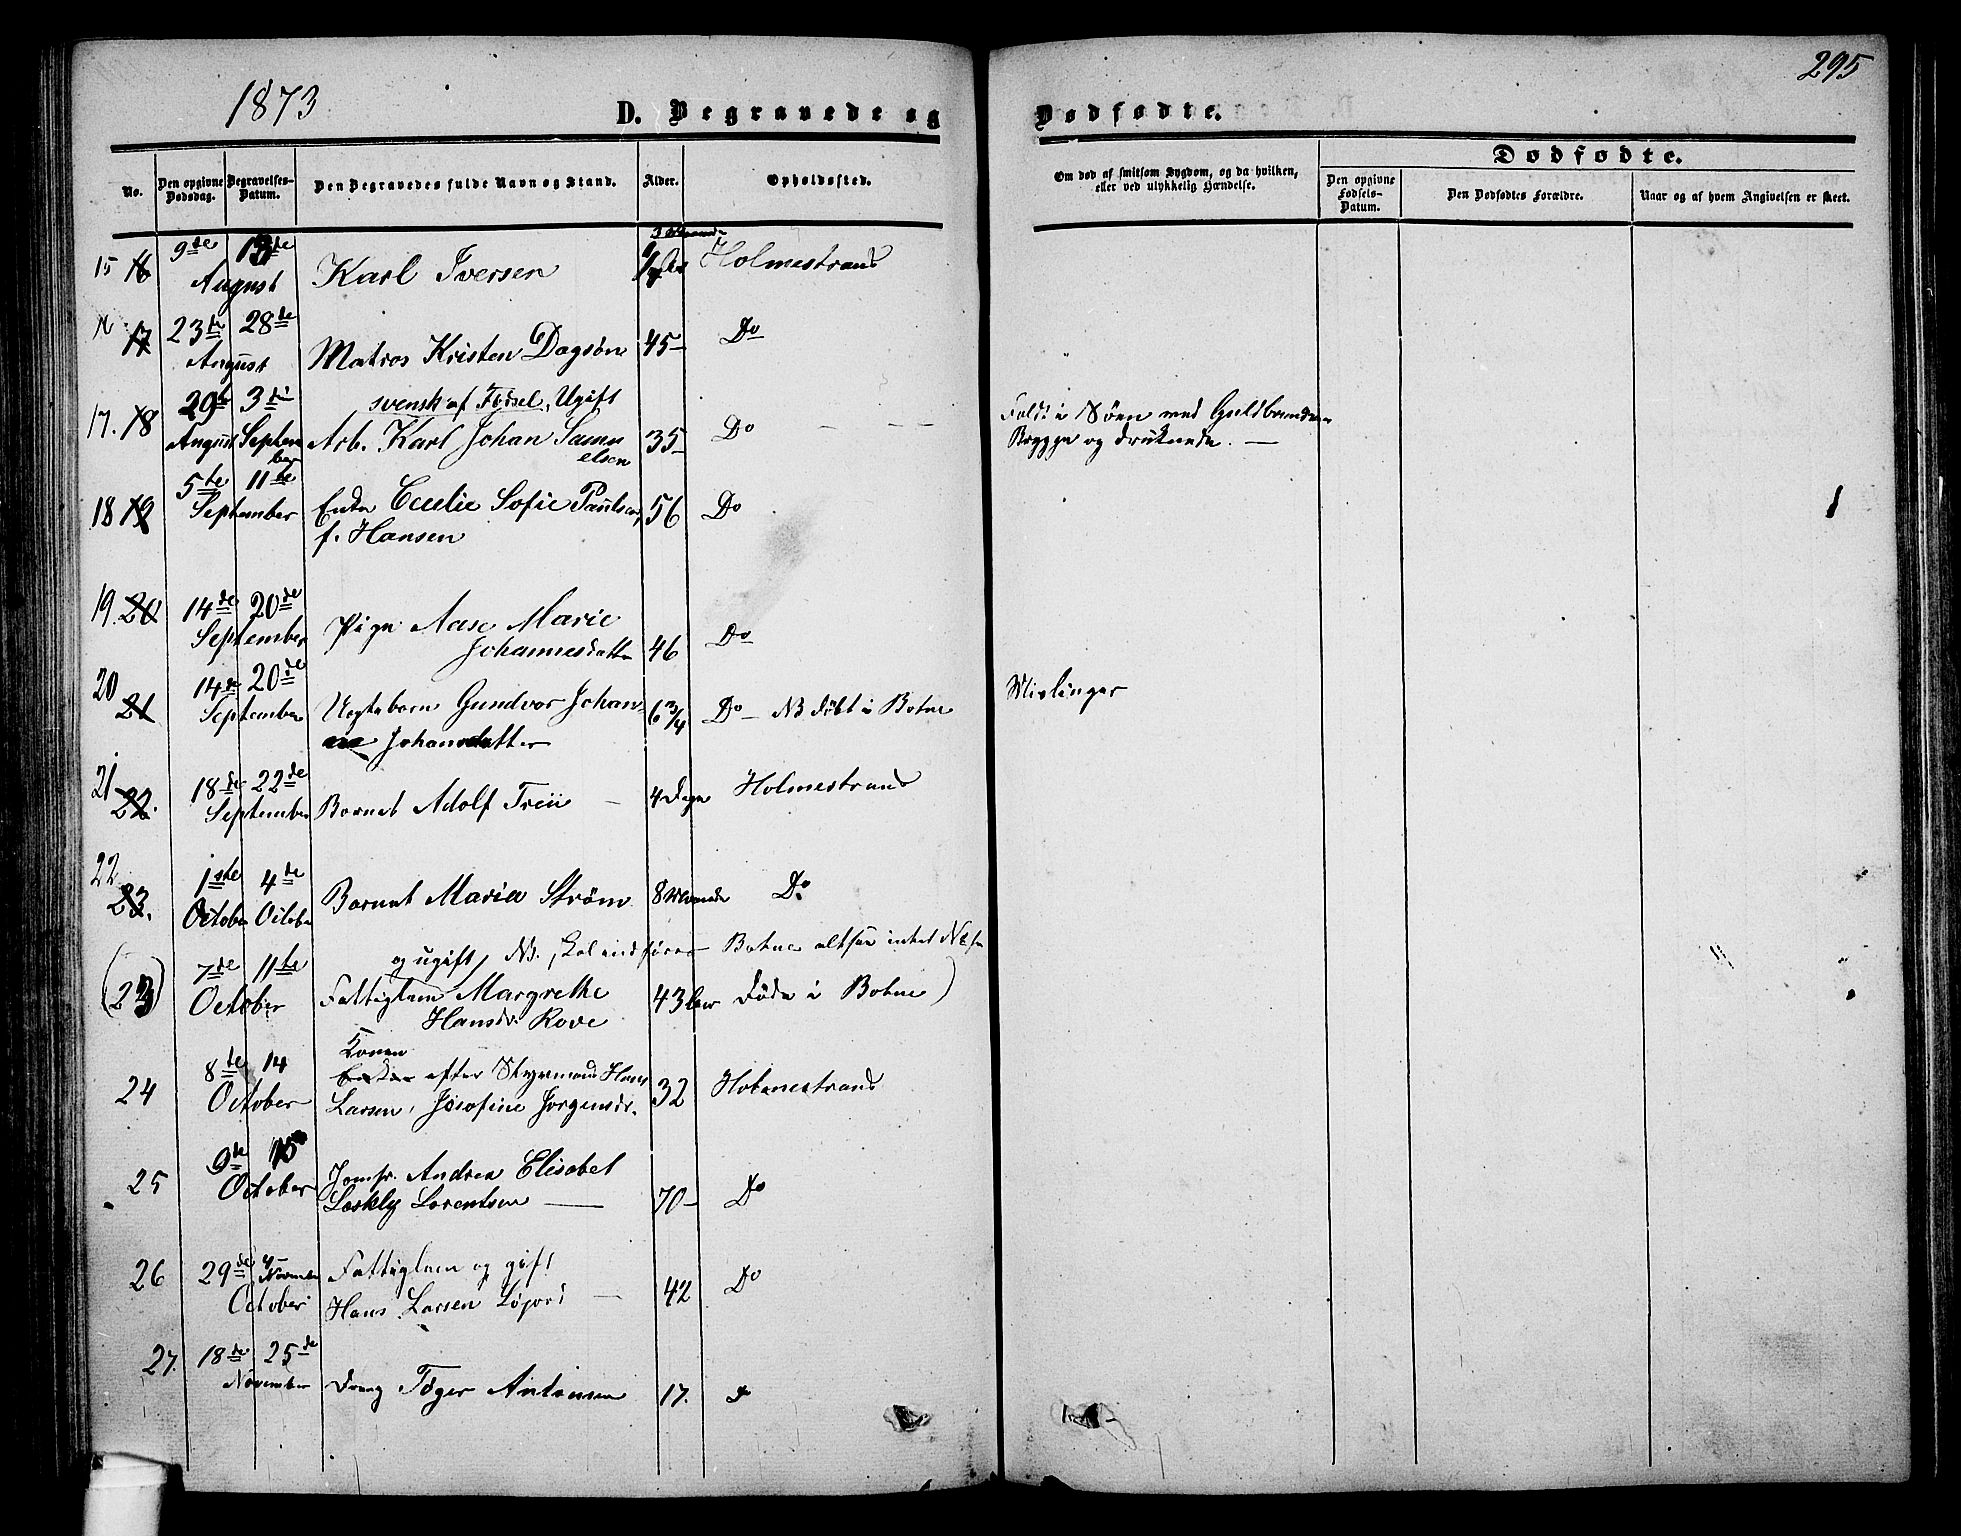 1873
D. Begravede og
Dødfødte.
295
No.
Den opgivne Dødsdag.
Begravelses-Datum.
Den Begravedes fulde Navn og Stand.
Alder.
Opholdssted.
Om død af smitsom Sygdom, og da hvilken,
eller ved ulykkelig Hændelse.
Dødfødte.
Den opgivne Fødsels-Datum.
Den Dødfødtes Forældre.
Naar og af hvem Angivelsen er skeet.
15 16 9de August 13de Karl Iversen Holmestrand
16 17 23de August 28de Matros Kristen Dagsøn 45 Do
svensk af Fødsel, Ugift
17. 18 29de August 3die September Arb. Karl Johan Samuelsen 35 Do
Faldt i Søen ved Guldbrandsens
Brygge og druknede.
18 19 5te September 11te Enke Cecilie Sofie Paulsen 56 Do
f. Hansen
19. 20 14de September 20de Pige Aase Marie
Johannesdatter 46 Do
20 21 14de September 20de Uegteborn Gundvor Johan- 6 3/4 Do NB Døbt i Botne
ne Johansdatter
Meslinger
21 22. 18de September 22de Barnet Adolf Treii 4 Dage Holmestrand
22 23. 1ste October 4de October Barnet Maria Strøm 8 Maaneder Do
og ugift, NB. Botne altsaa intet No
(23) 7de October 11te Fattiglem Margrethe 43 Aar Døde i Botne)
Hansdr. Rove
Konen
24 8de October 14 Enke efter Styrmand Hans 32 Holmestrand
Larsen, Josefine Jørgensdr.
25 9de October 15 Jomfr. Andrea Elisabet
Lorentsen 70 Do
26 29de October 4 November Fattiglem og gift
Hans Larsen 42 Do
27. 18de November 25de Dreng Tøger Antonsen 17. Do